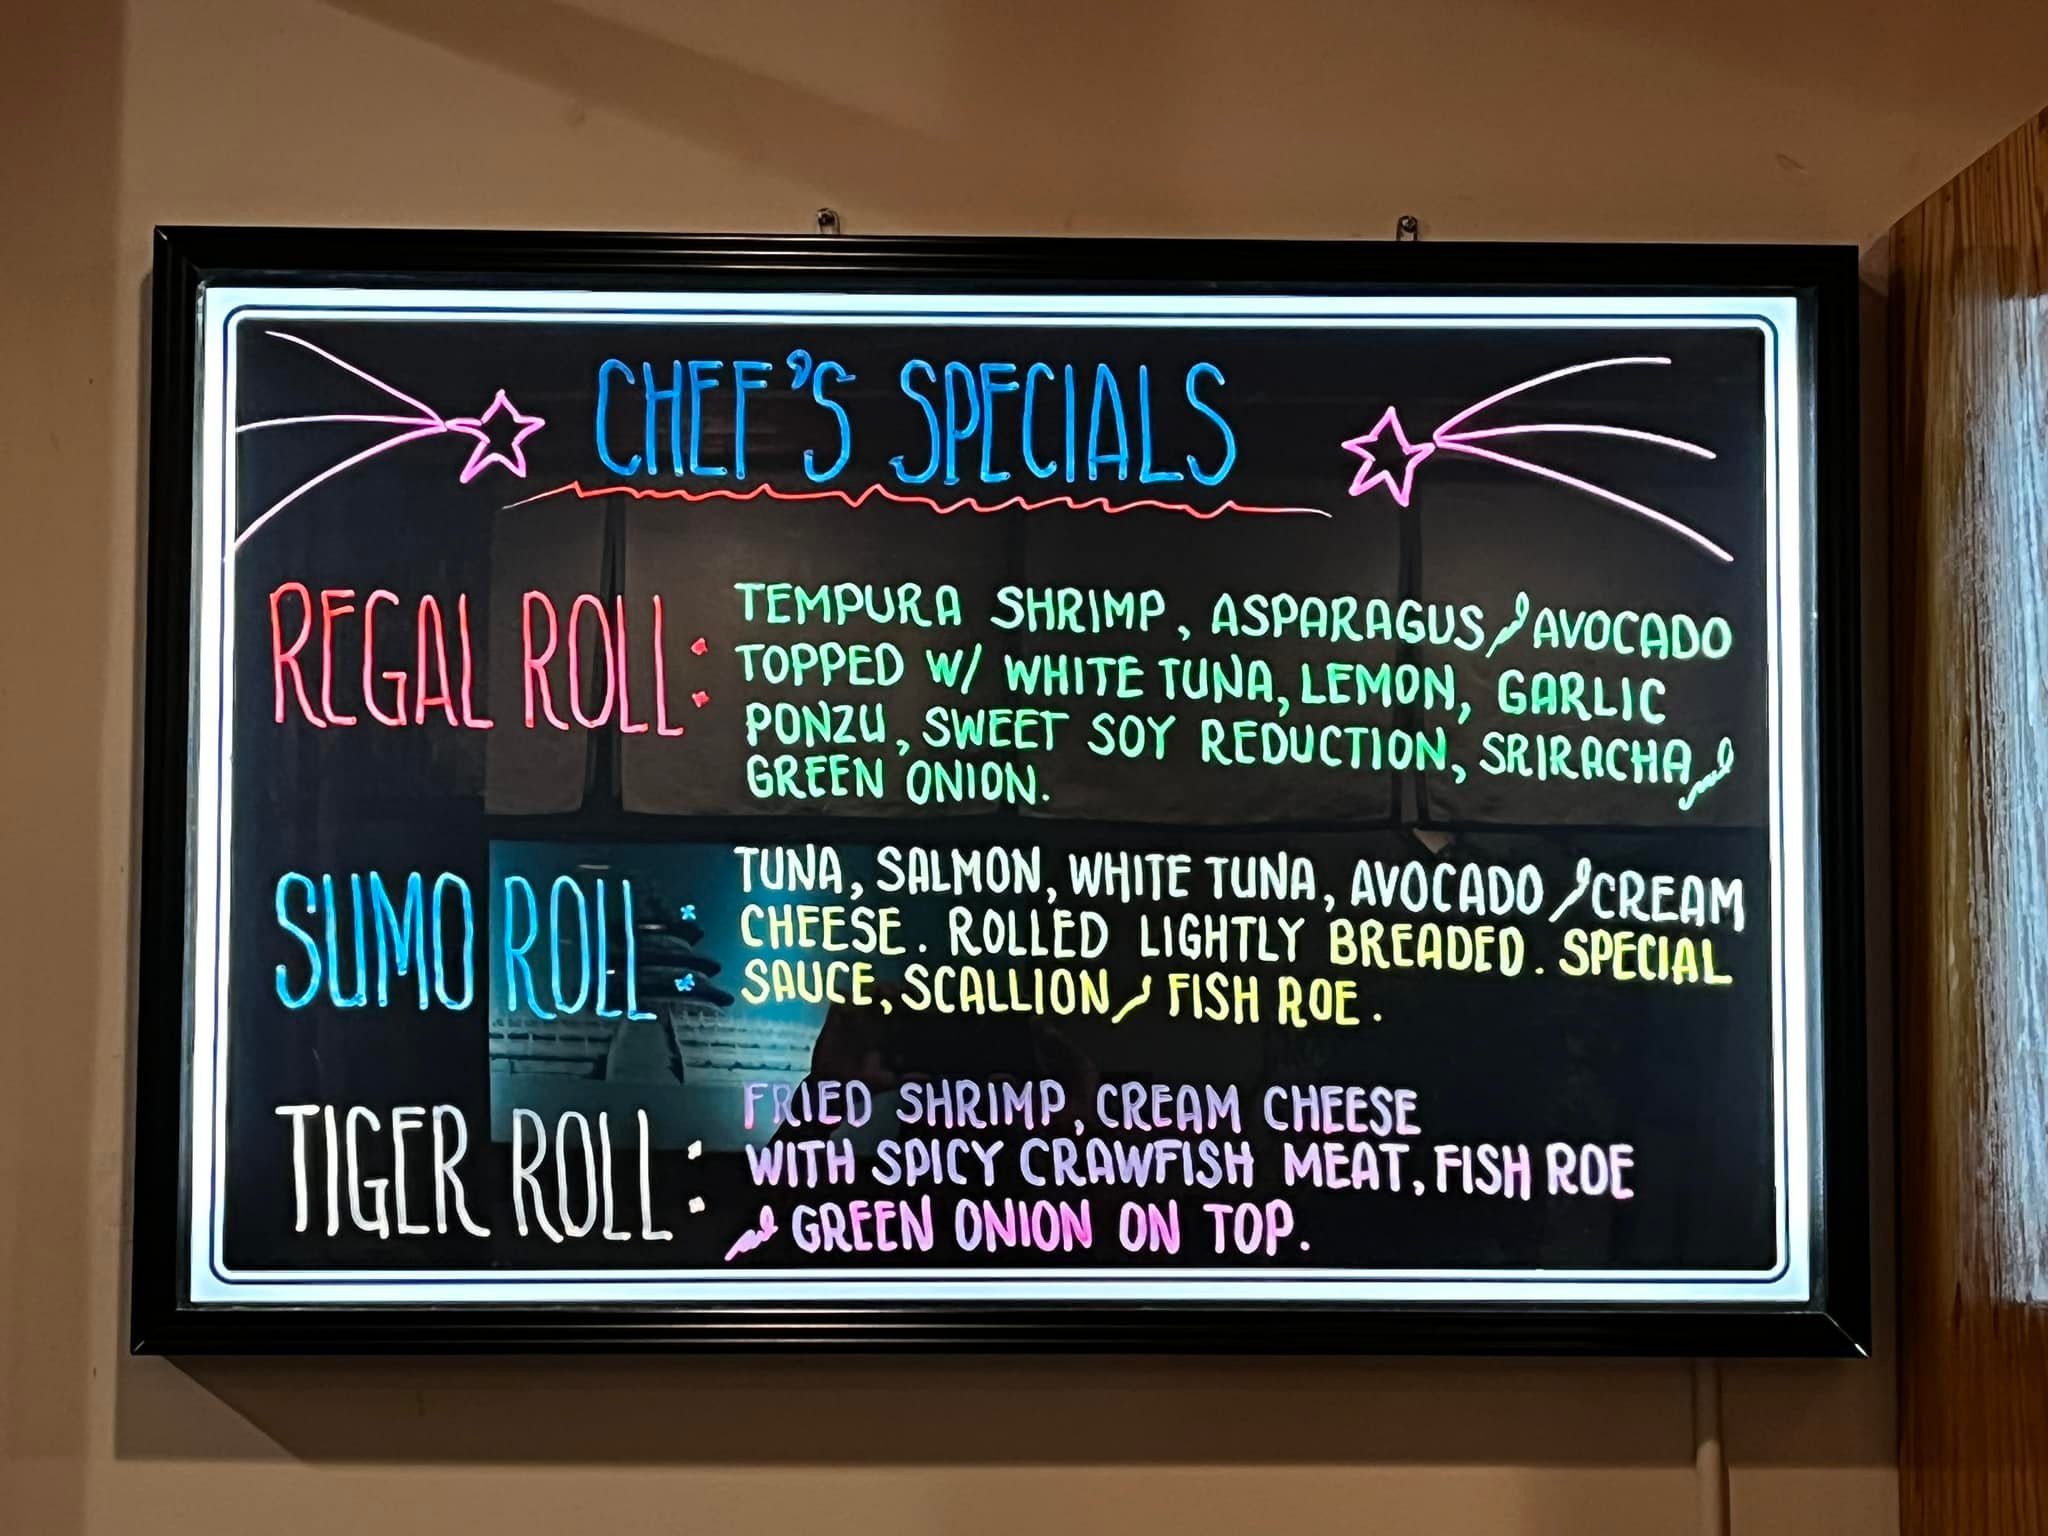 CHEF'S SPECIALS
REGAL ROLL: TEMPURA SHRIMP, ASPARAGUS & AVOCADO
TOPPED W/ WHITE TUNA, LEMON, GARLIC
PONZU, SWEET SOY REDUCTION, SRIRACHA &
GREEN ONION.
SUMO ROLL: TUNA, SALMON, WHITE TUNA, AVOCADO & CREAM
CHEESE. ROLLED LIGHTLY BREADED. SPECIAL
SAUCE, SCALLION & FISH ROE.
TIGER ROLL: FRIED SHRIMP, CREAM CHEESE
WITH SPICY CRAWFISH MEAT, FISH ROE
& GREEN ONION ON TOP.